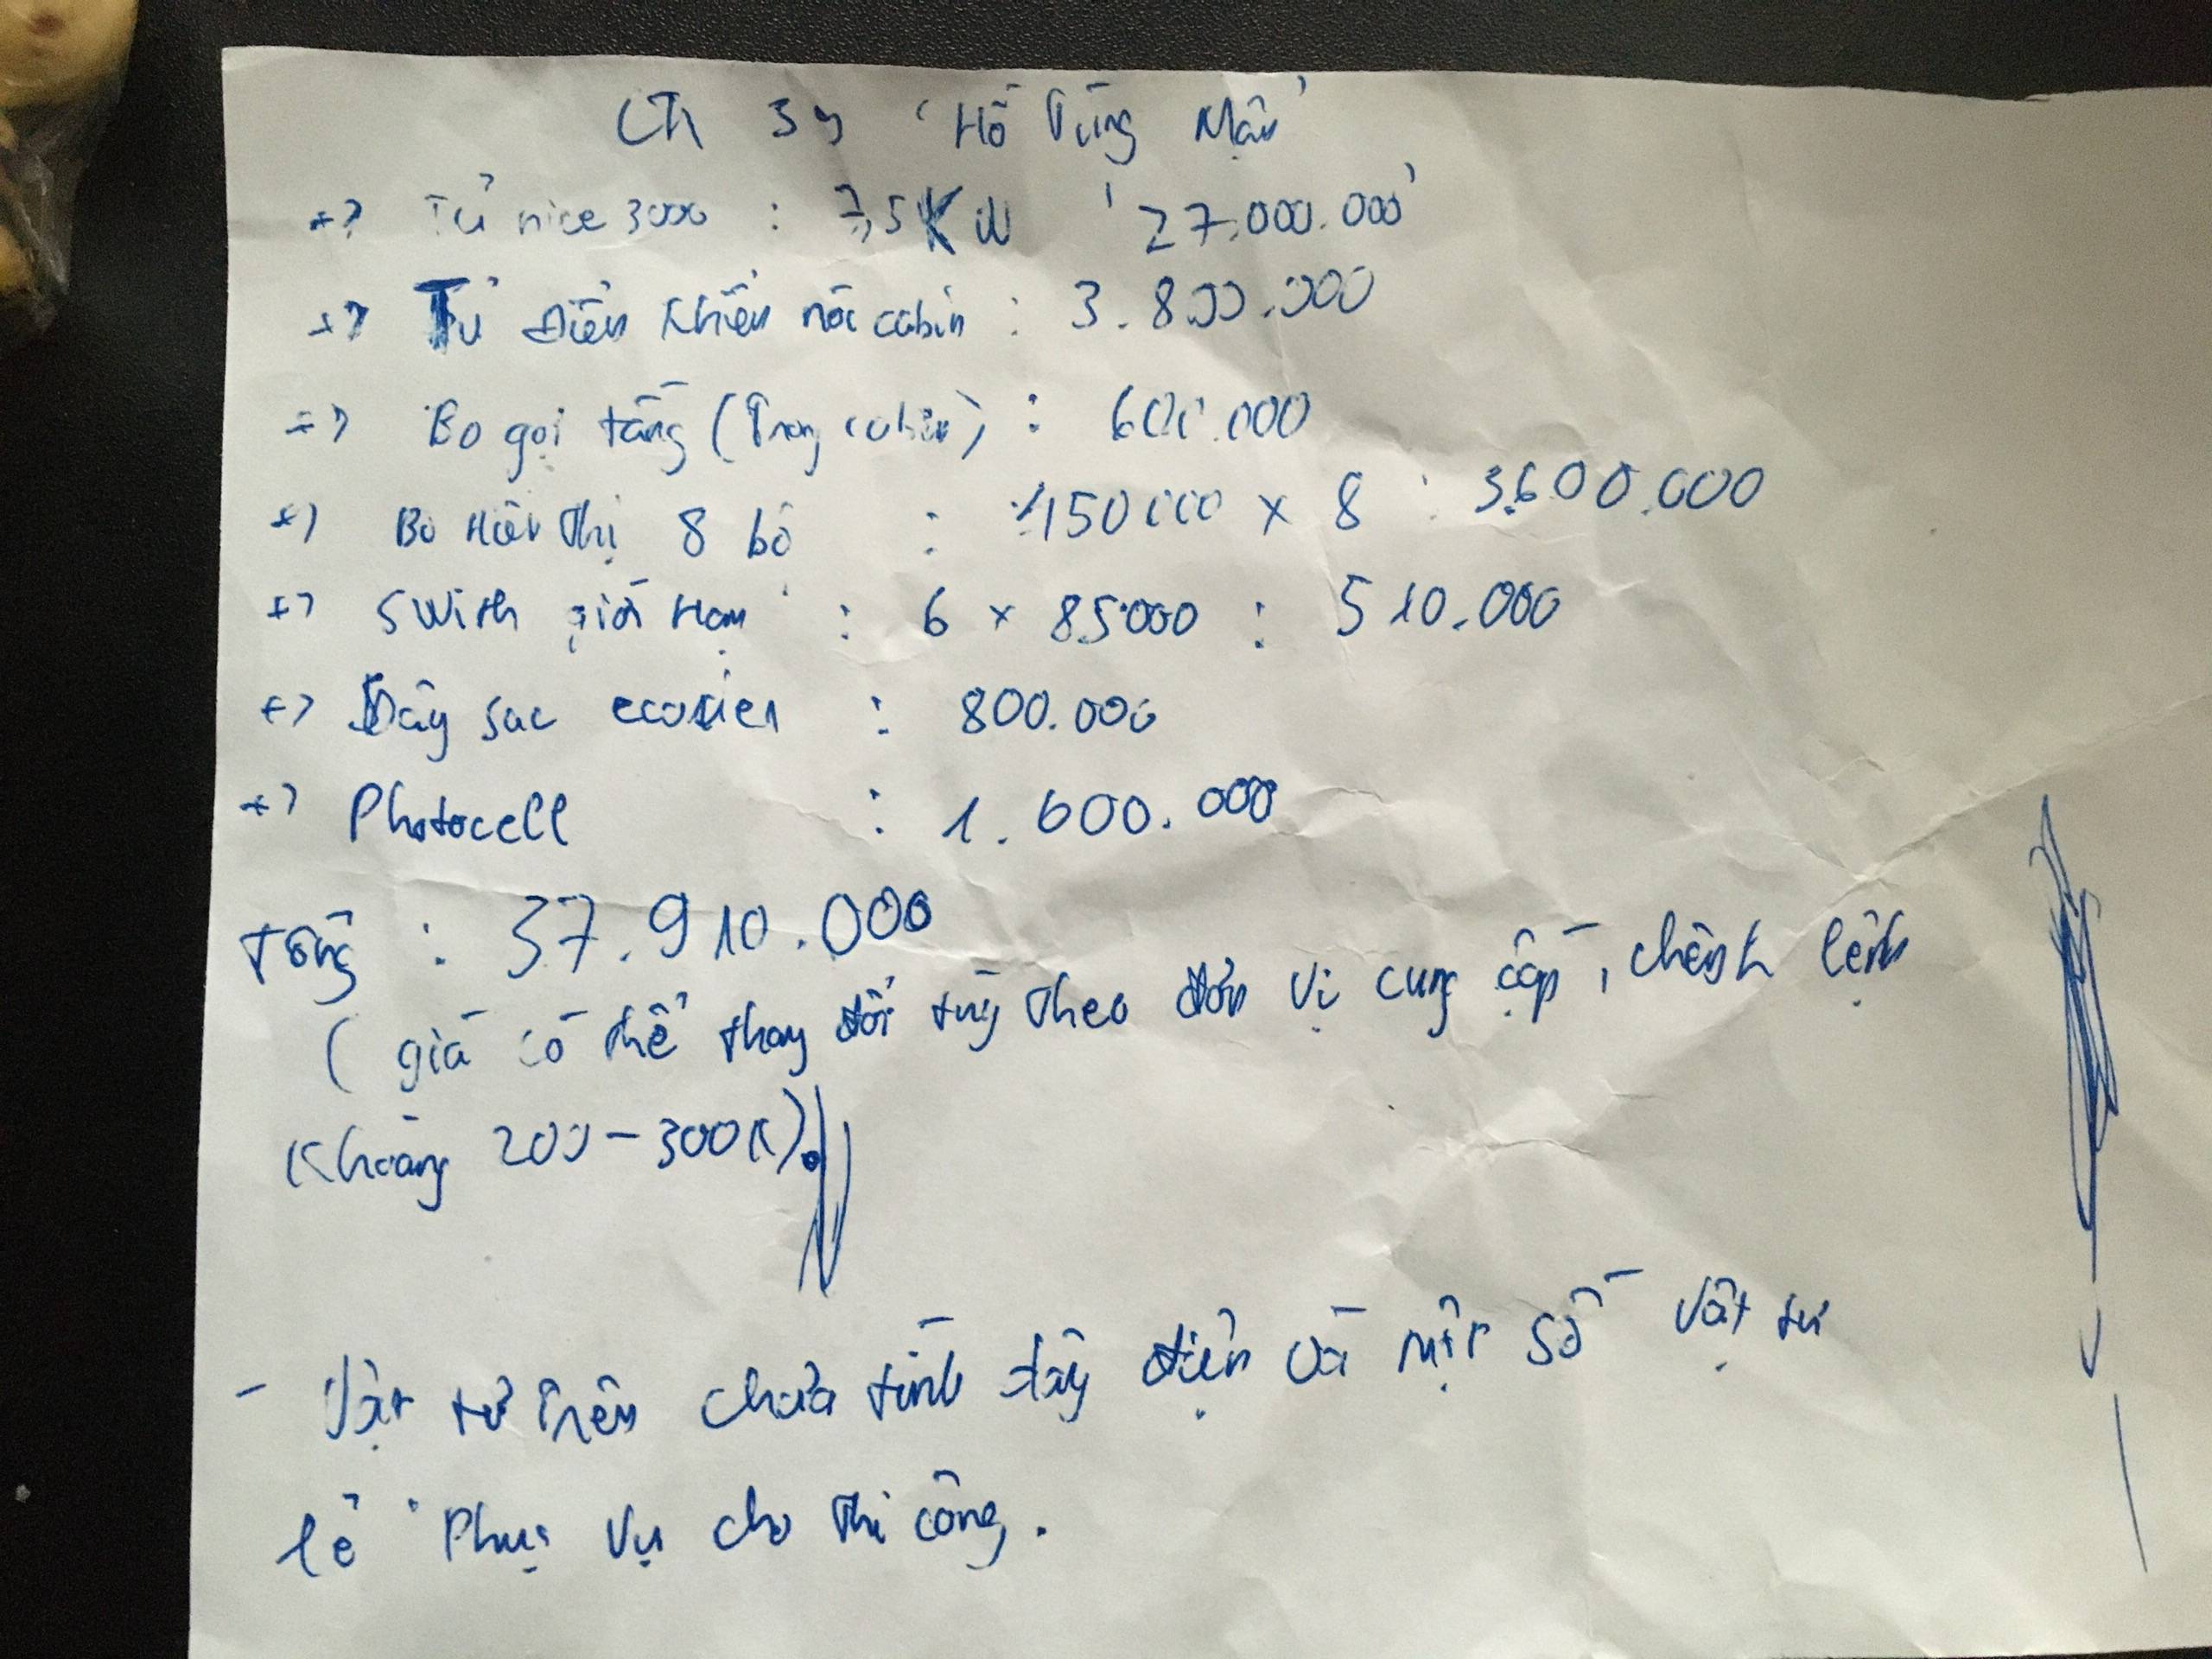 CTr 34 'Hồ Tùng Mậu'
+> Tủ nice 3000 : 7,5KW '27.000.000'
+> Tủ Điều Khiển nóc cabin : 3.800.000
=> Bo gọi tầng (Trong cabin) : 600.000
+> Bo Hiển Thị 8 bộ : 450000 x 8 : 3.600.000
+> Swith giới Hạn : 6 x 85000 : 510.000
+> Dây sạc : 800.000
+> Photocell : 1.600.000
Tổng : 37.910.000
( giá có thể thay đổi tùy Theo đơn vị cung cấp, chênh lệch
Khoảng 200 - 300K).
- Vật tư Trên chưa tính dây điện và một số vật tư
lẻ Phục vụ cho Thi công.